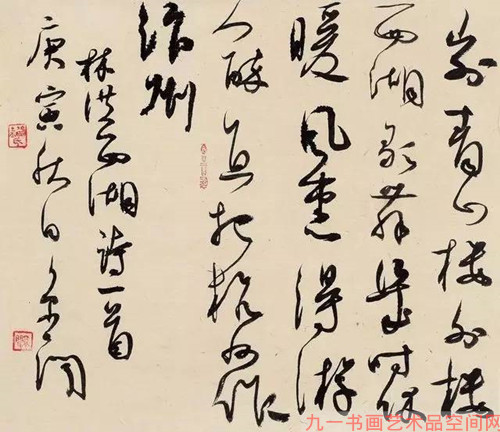 山外青山楼外楼
西湖歌舞幾时休
暖风熏得游
人醉直把杭州作
汴州
林洪西湖诗一首
庚寅秋日
九一书画艺术品空间网